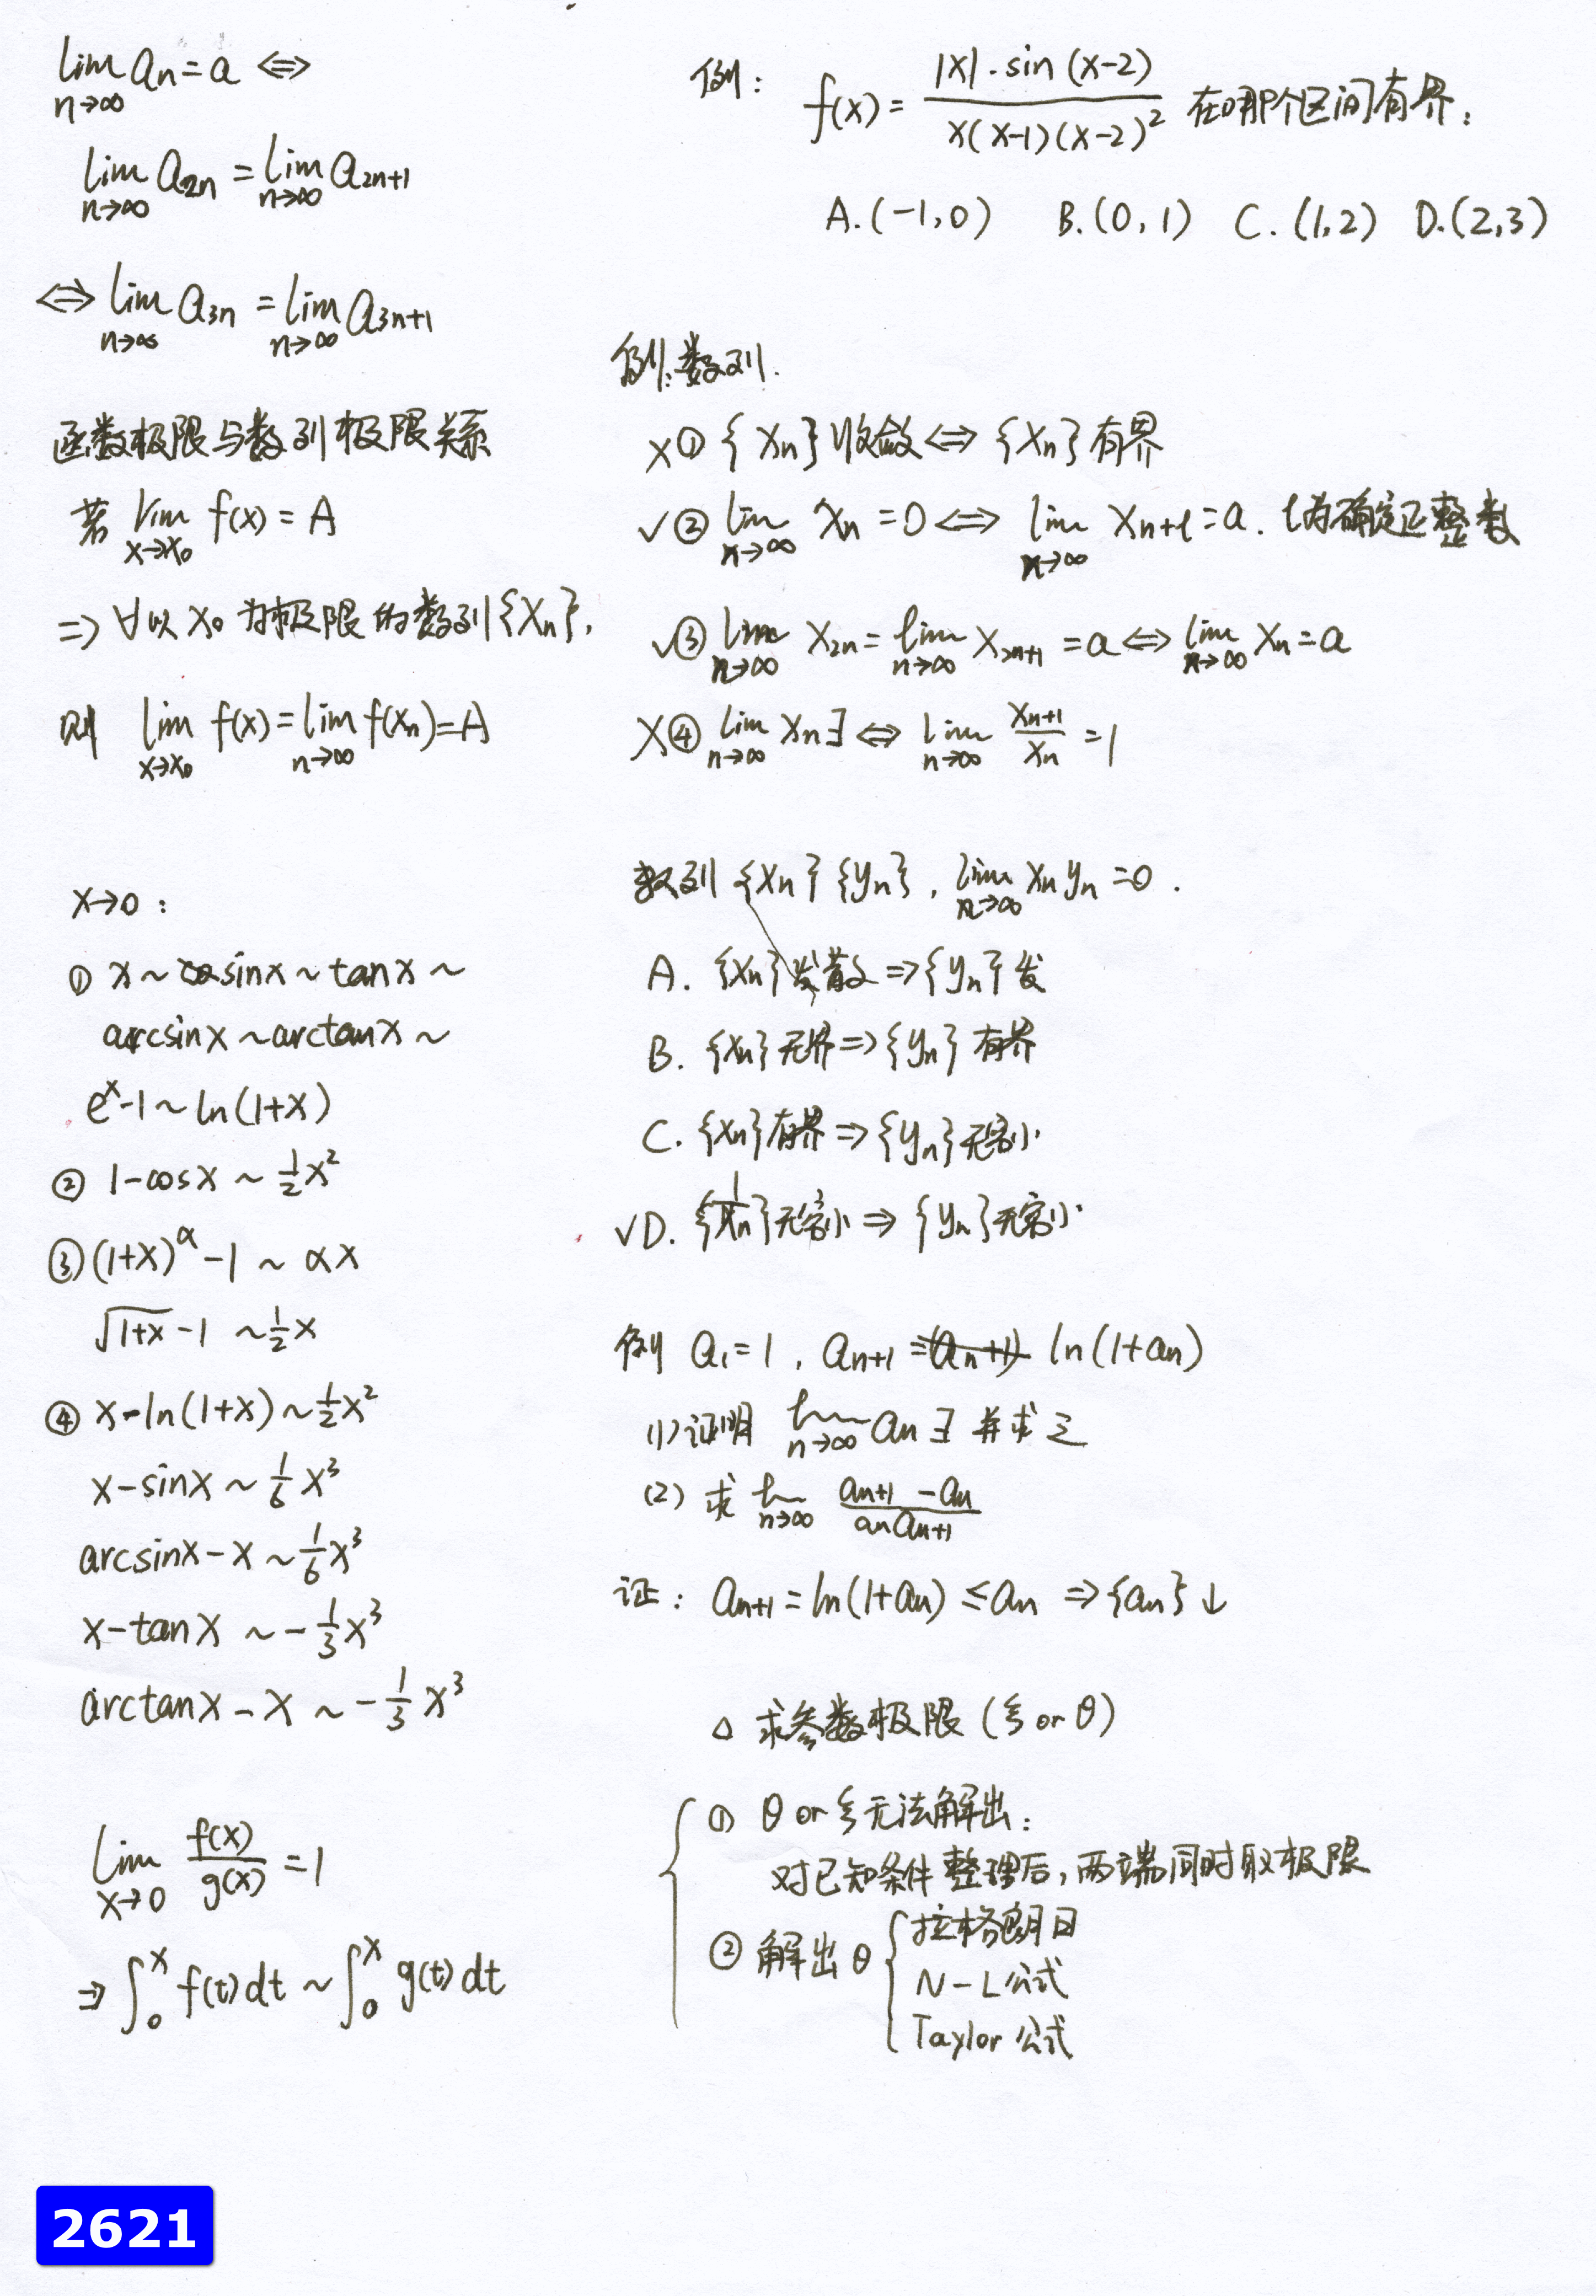 lim_{n→∞} aₙ = a ⟺
lim_{n→∞} a₂ₙ = lim_{n→∞} a₂ₙ₊₁
⟺ lim_{n→∞} a₃ₙ = lim_{n→∞} a₃ₙ₊₁
函数极限与数列极限关系
若 lim_{x→x₀} f(x) = A
⇒ ∀以 x₀ 为极限的数列{xₙ},
则 lim_{x→x₀} f(x) = lim_{n→∞} f(xₙ) = A
x→0:
① x ~ sinx ~ tanx ~
arcsinx ~ arctanx ~
eˣ-1 ~ ln(1+x)
② 1-cosx ~ ½x²
③ (1+x)^α - 1 ~ αx
√(1+x) - 1 ~ ½x
④ x-ln(1+x) ~ ½x²
x-sinx ~ 1/6 x³
arcsinx - x ~ 1/6 x³
x-tanx ~ -1/3 x³
arctanx - x ~ -1/3 x³
lim_{x→0} f(x)/g(x) = 1
⇒ ∫₀ˣ f(t)dt ~ ∫₀ˣ g(t)dt
例: f(x) = |x|·sin(x-2) / x(x-1)(x-2)² 在哪个区间有界:
A.(-1,0) B.(0,1) C.(1,2) D.(2,3)
例:数列.
×① {xₙ}收敛 ⟺ {xₙ}有界
✓② lim_{n→∞} xₙ = 0 ⟺ lim_{n→∞} x_{n+l} = a. l为确定正整数
✓③ lim_{n→∞} x₂ₙ = lim_{n→∞} x₂ₙ₊₁ = a ⟺ lim_{n→∞} xₙ = a
×④ lim_{n→∞} xₙ∃ ⟺ lim_{n→∞} xₙ₊₁/xₙ = 1
数列{xₙ}{yₙ}, lim_{n→∞} xₙyₙ = 0.
A. {xₙ}发散 ⇒ {yₙ}发
B. {xₙ}无界 ⇒ {yₙ}有界
C. {xₙ}有界 ⇒ {yₙ}无穷小
✓D. {1/xₙ}无穷小 ⇒ {yₙ}无穷小
例 a₁=1, aₙ₊₁ = ln(1+aₙ)
(1)证明 lim_{n→∞} aₙ∃ 并求之
(2) 求 lim_{n→∞} (aₙ₊₁ - aₙ)/(aₙaₙ₊₁)
证: aₙ₊₁ = ln(1+aₙ) ≤ aₙ ⇒ {aₙ}↓
△ 求参数极限(ξ or θ)
① θ or ξ无法解出:
对已知条件整理后,两端同时取极限
② 解出θ { 拉格朗日
N-L公式
Taylor公式
2621